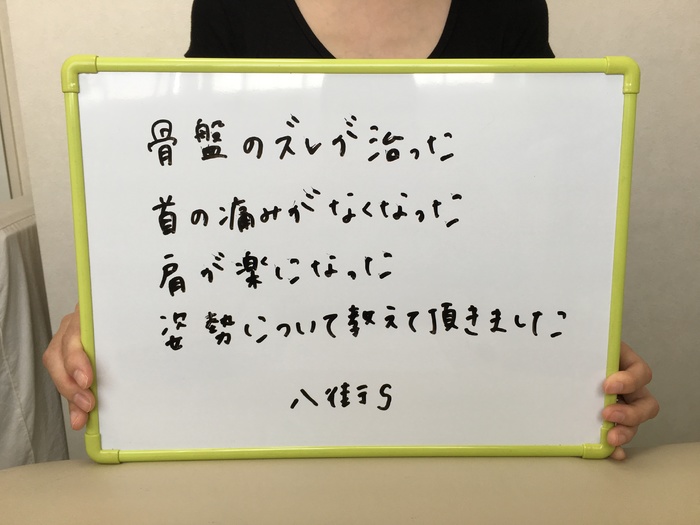 骨盤のズレが治った
首の痛みがなくなった
肩が楽になった
姿勢について教えて頂きました
八街市S